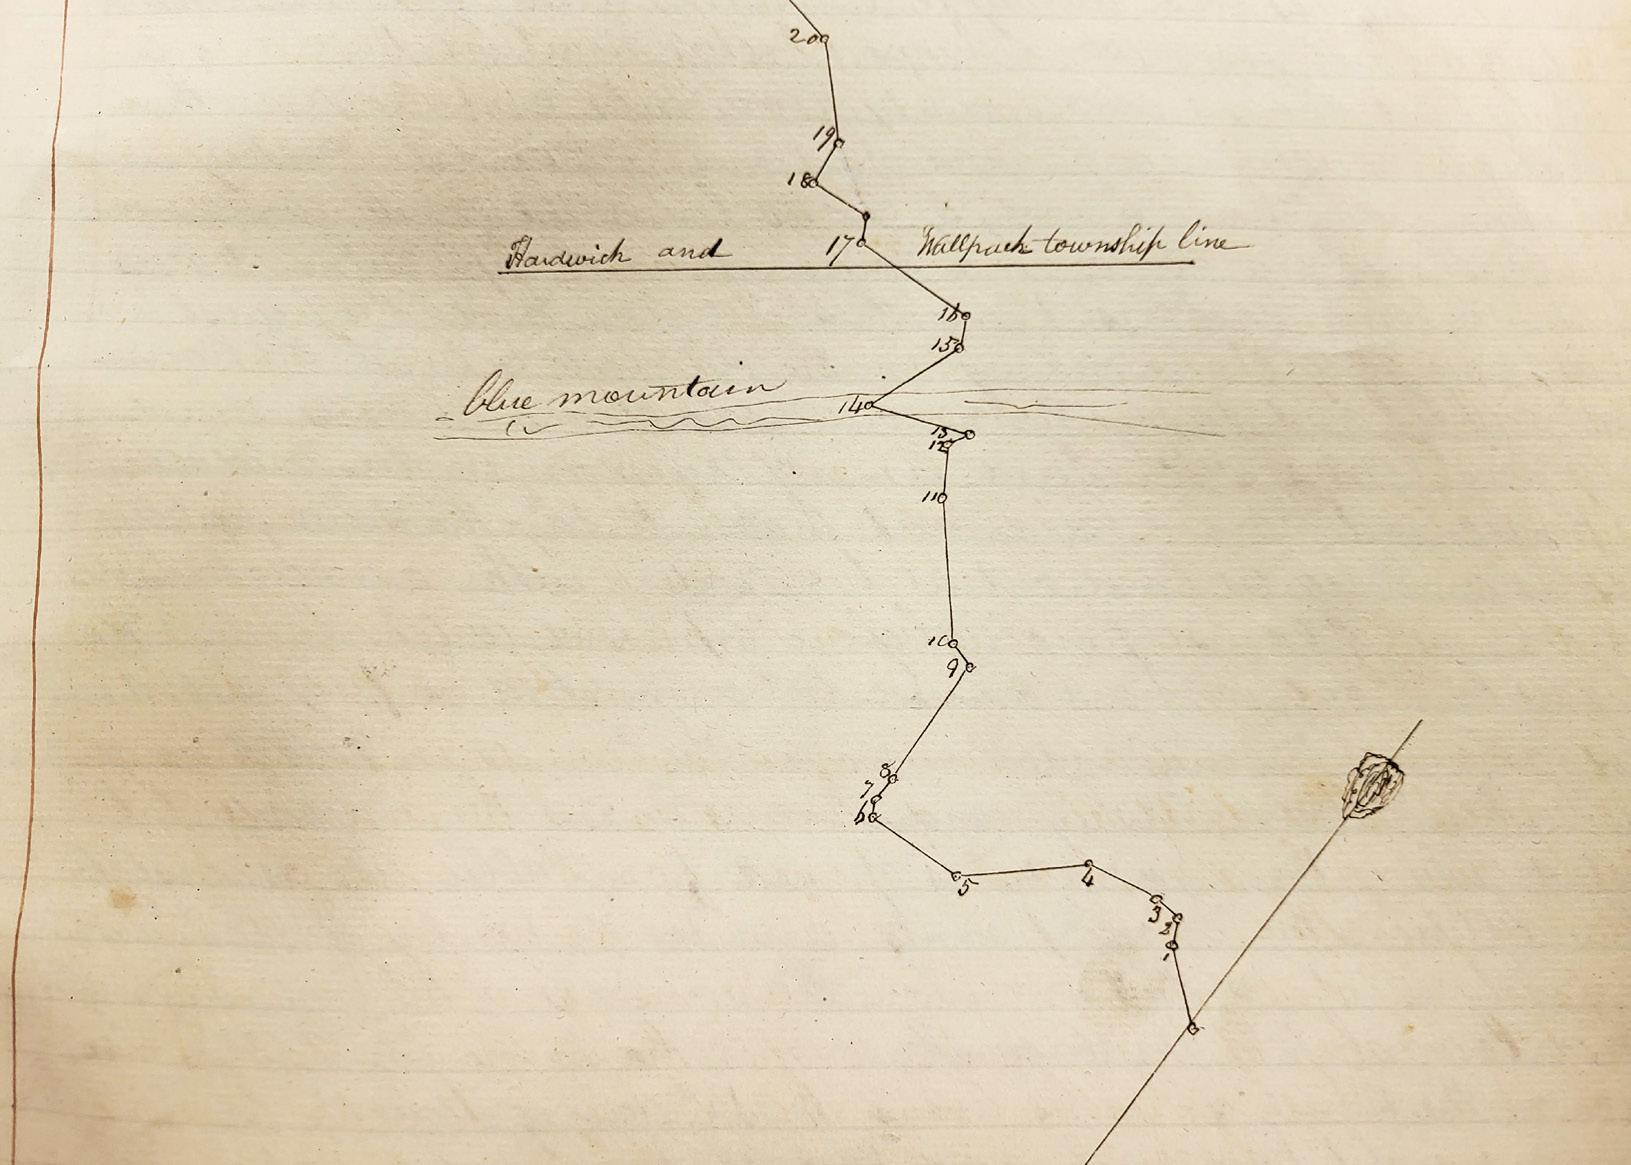 20
19
18
17
Hardwich and Wallpack township line
16
15
blue mountain
14
13
12
11
10
9
8
7
6
5
4
3
2
1